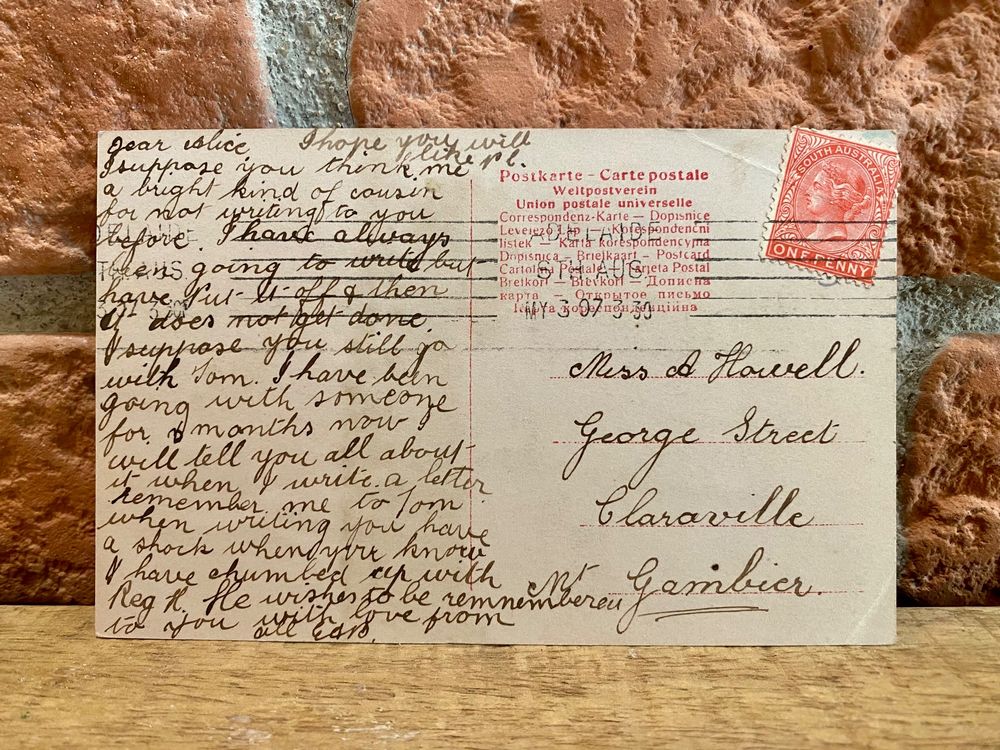 Dear Alice I hope you will
like P.C.
I suppose you think me
a bright kind of cousin
for not writing to you
before. I have always
been going to write but
have Put it off & then
it does not get done.
I suppose you still go
with Tom. I have been
going with someone
for months now I
will tell you all about
it when I write a letter
remember me to Tom
when writing you have
a shock when you know
I have chumbed up with
Reg H. He wishes to be remnembered
to you with love from
all
Postkarte - Carte postale
Weltpostverein
Union postale universelle
Correspondenz-Karte — Dopisnice
Levelező-Lap — Korespondenční
lístek — Karta korespondencyjna
Dopisnica — Briefkaart — Postcard
Cartolina Postale — Tarjeta Postal
Brefkort — Brevkort — Дописна
карта — Открытое письмо
Карта кореспонденційна
SOUTH AUSTRALIA
ONE PENNY
ADELAIDE
STH AUS
MY 3 07 3 35
Miss A Howell.
George Street
Claraville
Mt Gambier.